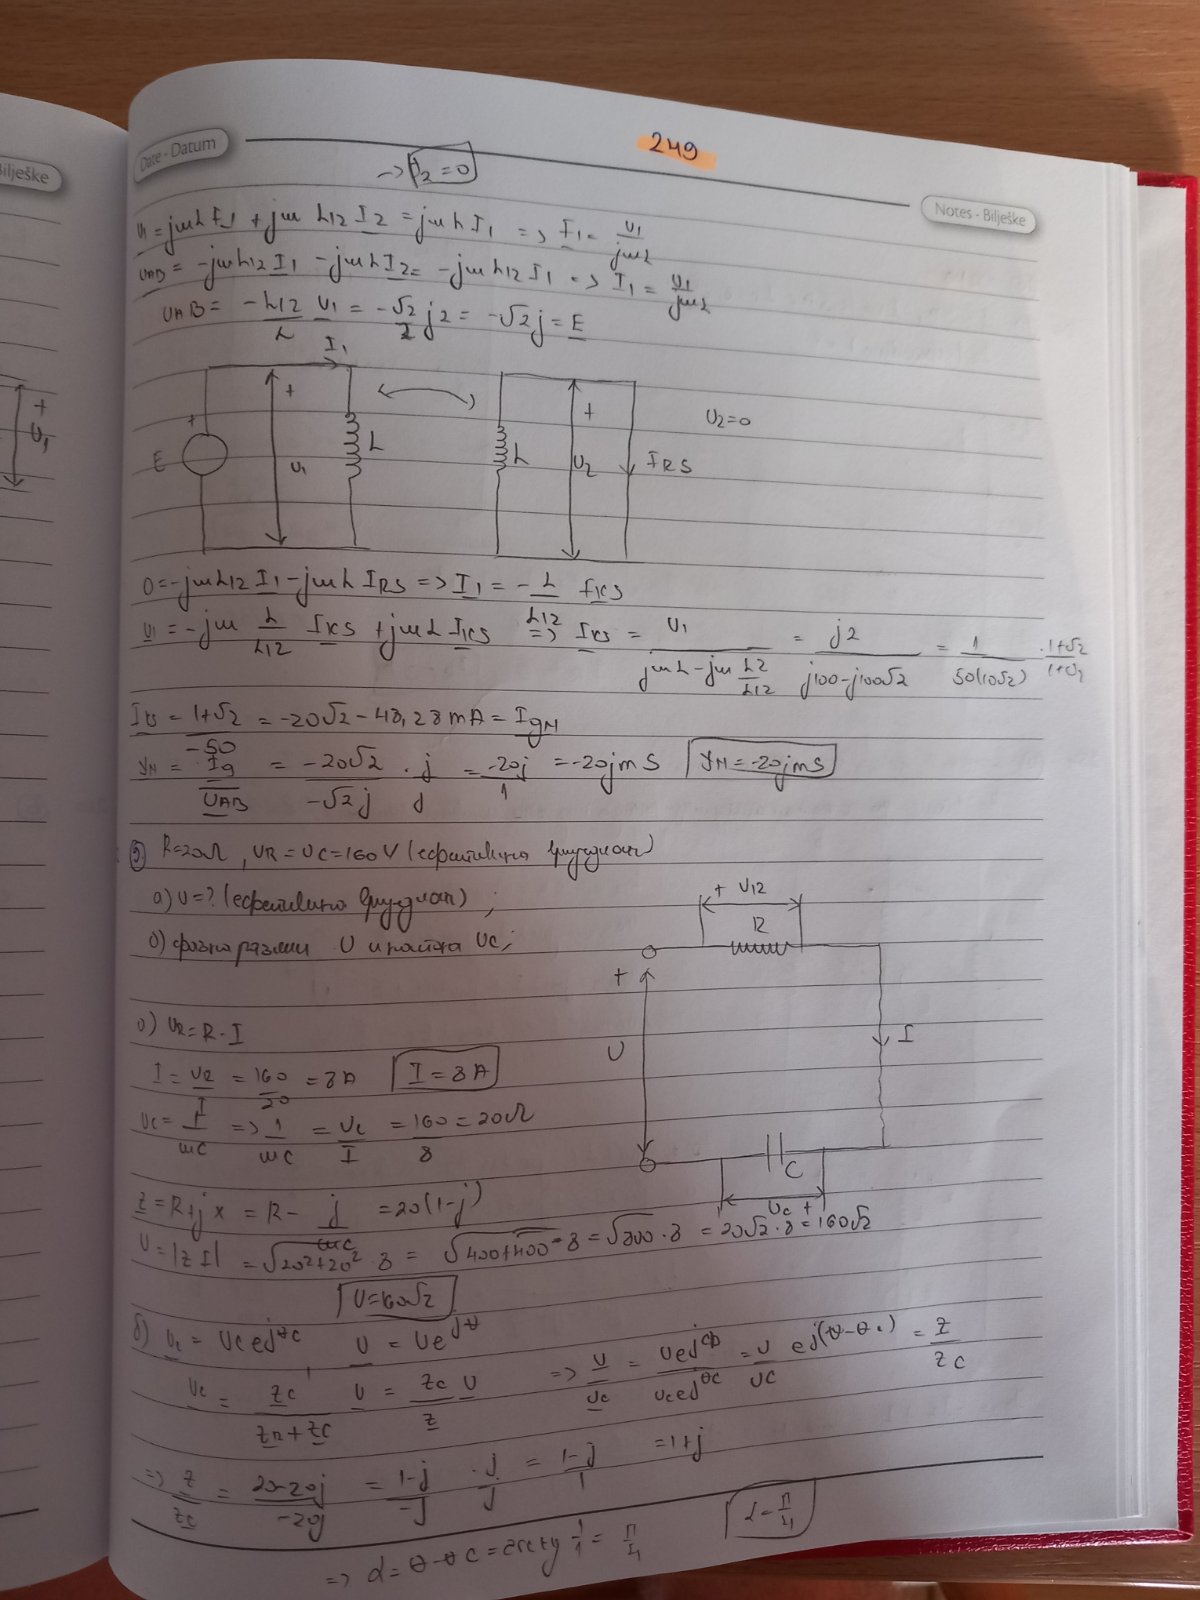 Bilješke
Date - Datum
249
Notes - Bilješke
→ U2 = 0
U1 = jωL I1 + jω L12 I2 = jωL I1 => I1 = U1/jωL
UAB = -jωL12 I1 - jωL I2 = -jωL12 I1 => I1 = U1/jωL
UAB = -L12/L U1 = -√2/2 j2 = -√2j = E
I1
+
U1
+
E
+
U1
L
L
+
U2
IKS
U2=0
0 = -jωL12 I1 - jωL IKS => I1 = -L/L12 IKS
U1 = -jω L/L12 IKS + jωL IKS => IKS = U1/(jωL - jω L2/L12) = j2/(j100 - j100√2) = 1/50(10√2) · 1+√2/1+√2
IKS = 1+√2/-50 = -20√2 - 48,28mA = IgN
YN = Ig/UAB = -20√2/-√2j · j/j = -20j/1 = -20jmS YN = -20jmS
5) R=20Ω, UR = UC = 160V (ефективна вриједност)
a) U=? (ефективна вриједност);
б) фазна разлика U и напона UC;
+ U12
R
+
U
I
C
UC +
a) UR = R·I
I = UR/I = 160/20 = 8A I = 8A
UC = I/ωC => 1/ωC = UC/I = 160/8 = 20Ω
Z = R+jx = R - j/ωC = 20(1-j)
U = |Z I| = √20²+20² · 8 = √400+400 · 8 = √800 · 8 = 20√2 · 8 = 160√2
U=160√2
б) UC = UC e jθc U = Ue jθ
UC = ZC/ZR+ZC U = ZC/Z U => U/UC = Uejθ/UCejθC = U/UC ej(θ-θc) = Z/ZC
=> Z/ZC = 20-20j/-20j = 1-j/-j · j/j = 1-j/1 = 1+j
=> α = θ-θC = arctg 1/1 = π/4 α=π/4